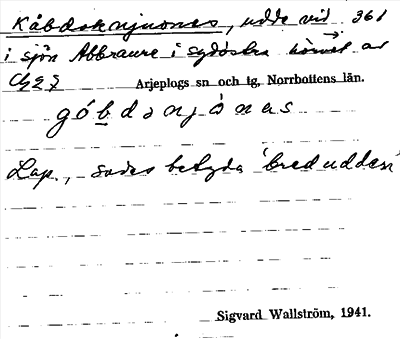 Kåbdoknjuones, udde vid 361
i sjön Abbraure i sydöstra hörnet av
Arjeplogs sn och tg, Norrbottens län.
Lap., sades betyda 'bredudden'
Sigvard Wallström, 1941.